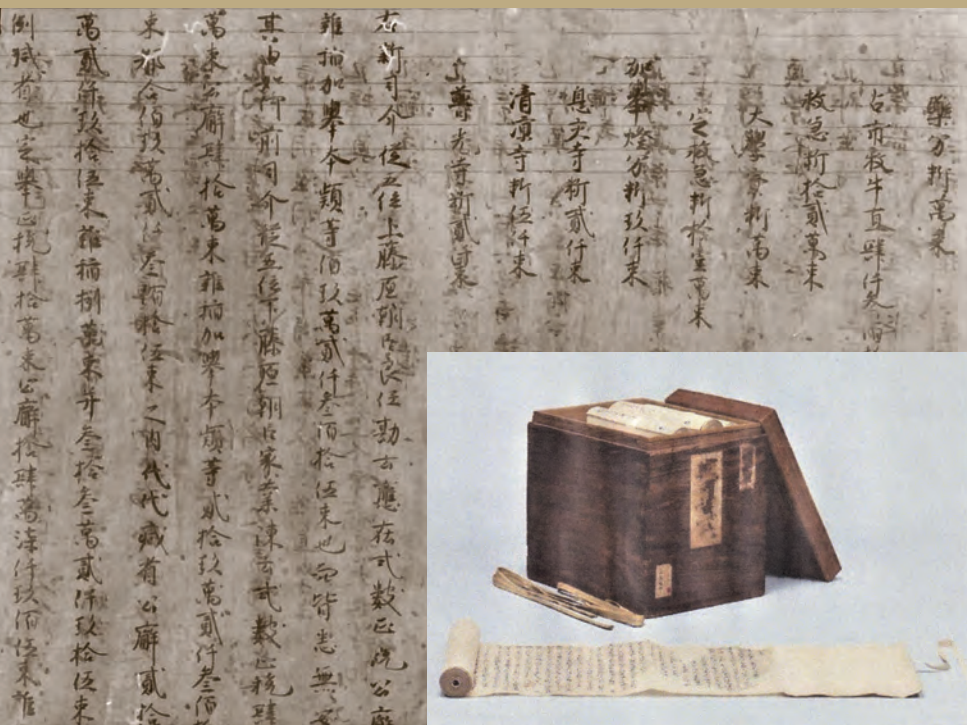 藥分料萬束
占市牧牛直肆仟叁佰
救急料拾貳萬束
大學寮料萬束
定救急料拾壹萬束
加擧燈分料玖仟束
息灾寺料貳仟束
清須寺料伍仟束
普光寺料貳仟束
右新司介從五位上藤原朝臣良任勘云應在式數正税公廨
雜稲加擧本穎等佰玖萬貳仟叁佰拾伍束也而皆悉無實
其由如何前司介從五位下藤原朝臣家業陳云式數正税肆
萬束公廨肆拾萬束雜稲加擧本穎等貳拾玖萬貳仟叁佰
束都合佰玖萬貳仟叁佰拾伍束之内代代減省公廨貳拾
萬貳仟玖拾伍束雜稲捌萬束并叁拾叁萬貳仟玖拾伍束
例減省也定擧正税肆拾萬束公廨拾肆萬漆仟玖佰伍束雜